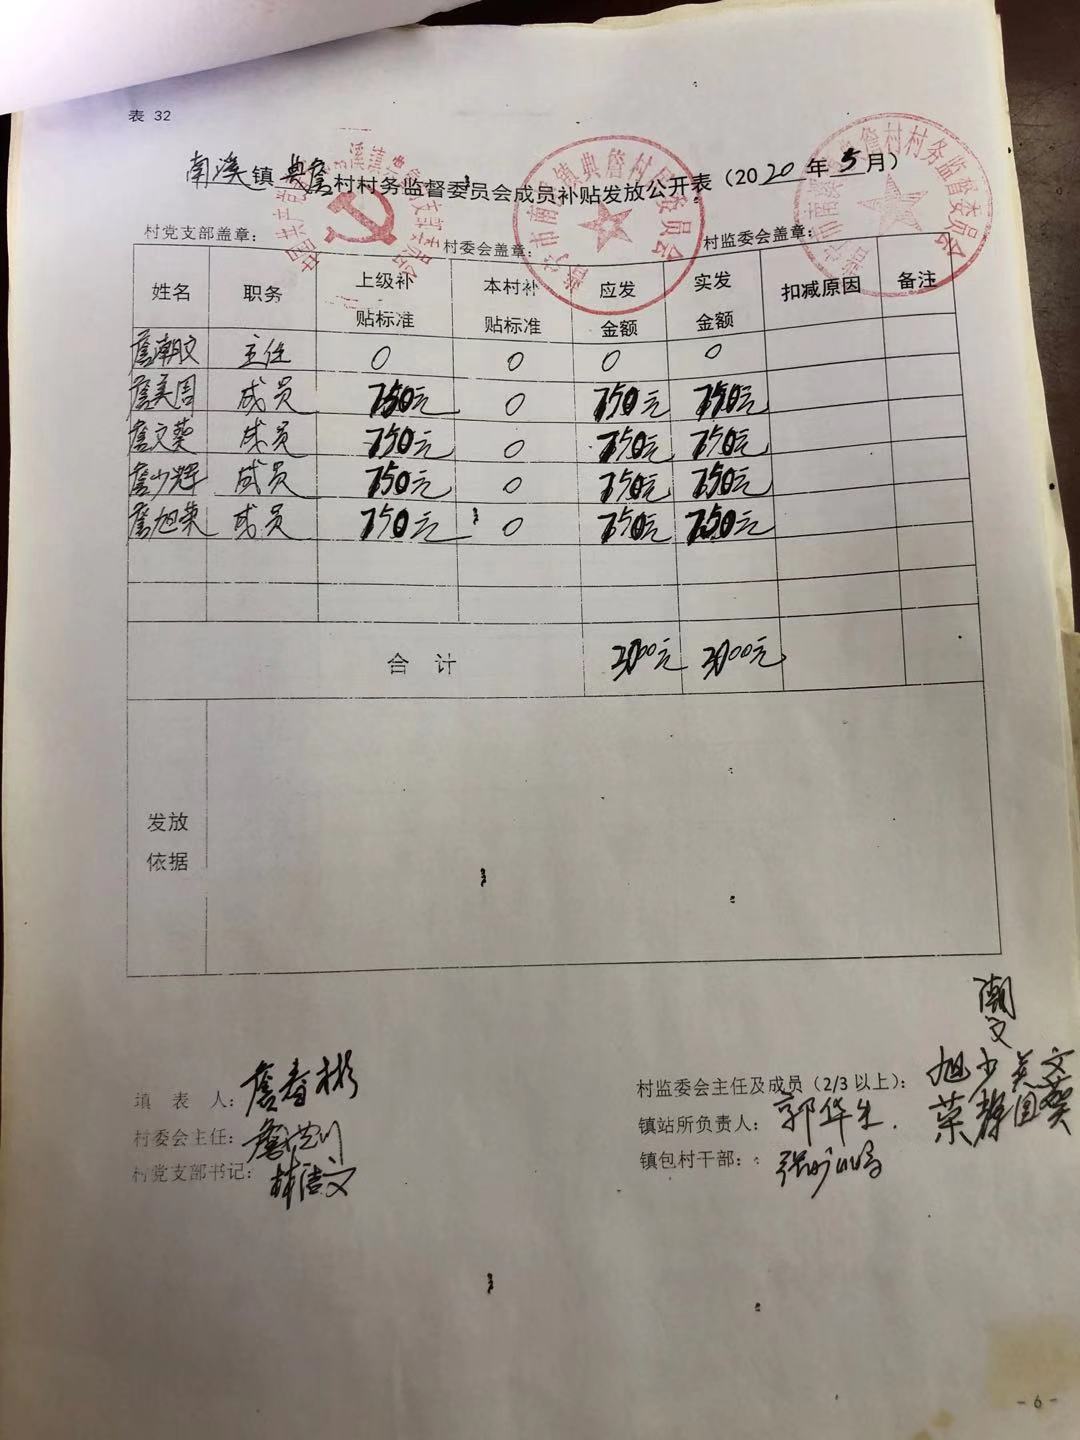 表 32
南溪镇典詹村村务监督委员会成员补贴发放公开表（2020年5月）
村党支部盖章： 村委会盖章： 村监委会盖章：
姓名 职务 上级补贴标准 本村补贴标准 应发金额 实发金额 扣减原因 备注
詹潮文 主任 0 0 0 0
詹美周 成员 750元 0 750元 750元
詹文葵 成员 750元 0 750元 750元
詹少辉 成员 750元 0 750元 750元
詹旭荣 成员 750元 0 750元 750元
合计 3000元 3000元
发放依据
潮文
填表人：詹春彬 村监委会主任及成员（2/3以上）：旭荣 少辉 美周 文葵
村委会主任：詹 镇站所负责人：郭华生
村党支部书记：林洁文 镇包村干部：张
- 6 -